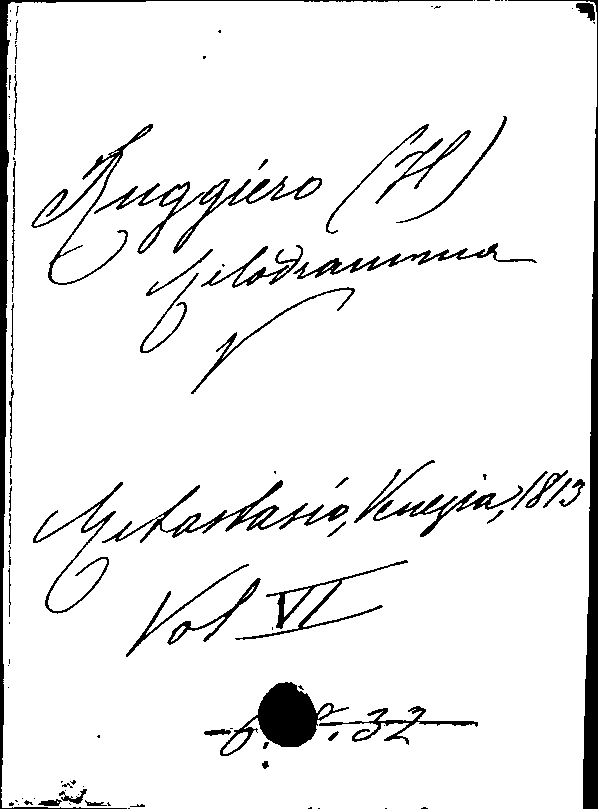 Ruggiero (Il)
Melodramma
V
Metastasio, Venezia, 1813
Vol VI
6. 32